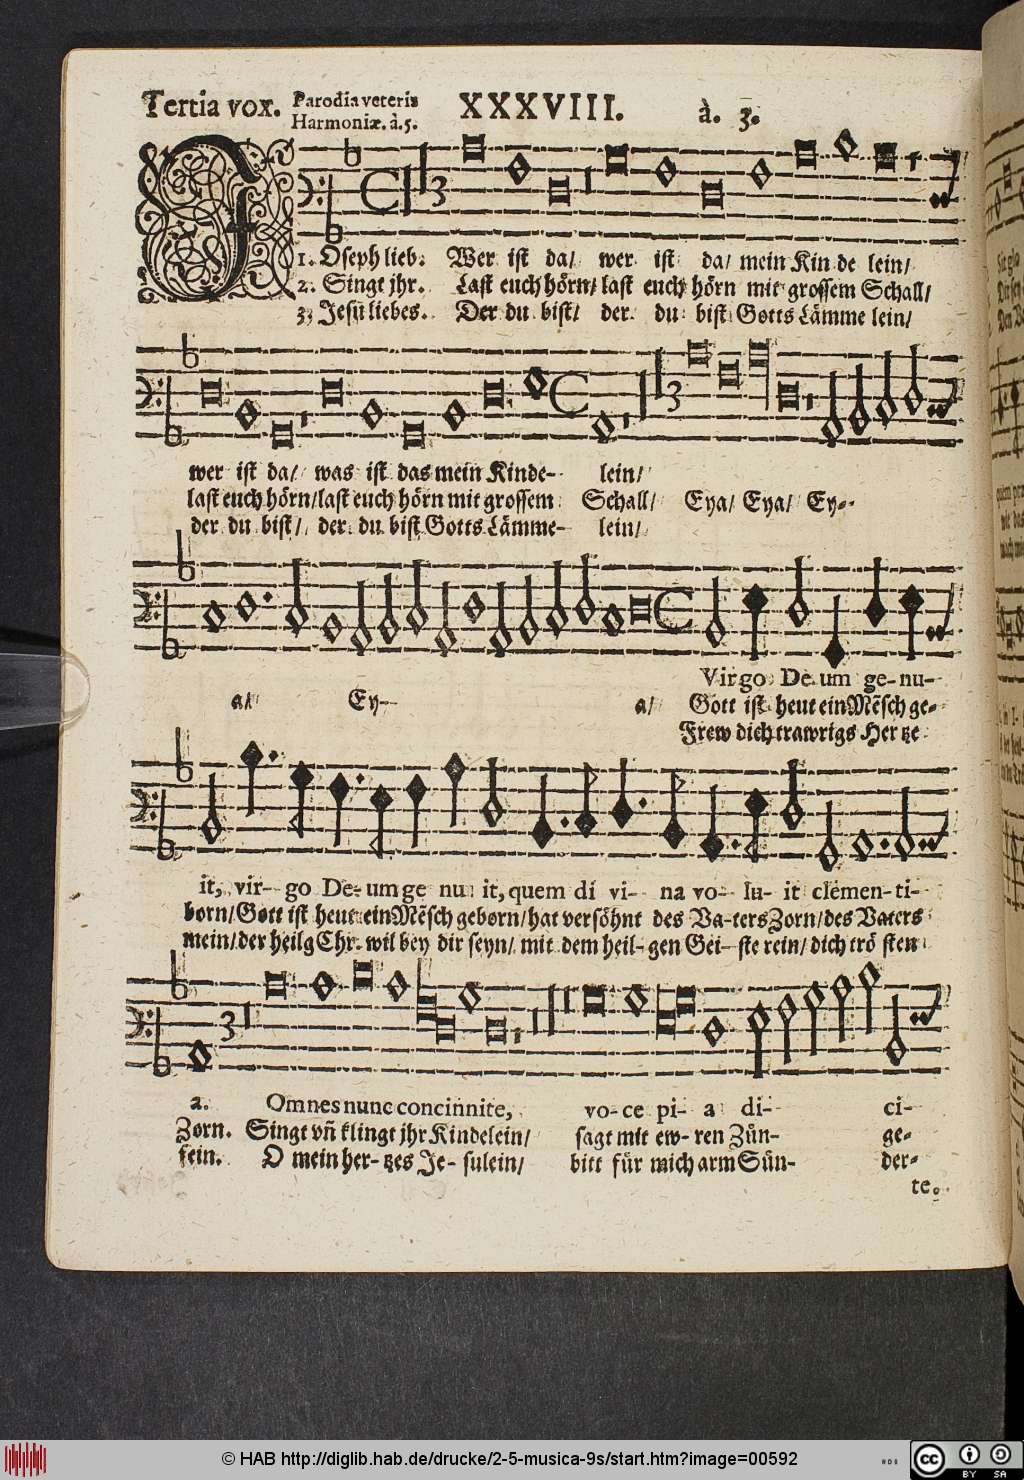 Tertia vox. Parodia veteris Harmoniæ. à. 5. XXXVIII. à. 3.
J
1. Oseph lieb. Wer ist da/ wer ist da/ mein Kin de lein/
2. Singt jhr. Last euch hörn/ last euch hörn mit grossem Schall/
3. Jesu liebes. Der du bist/ der du bist Gotts Lämme lein/
wer ist da/ was ist das mein Kinde- lein/
last euch hörn/ last euch hörn mit grossem Schall/ Eya/ Eya/ Ey-
der du bist/ der du bist Gotts Lämme- lein/
Virgo De um ge- nu-
a/ Ey- a/ Gott ist heut ein Mẽsch ge-
Frew dich trawrigs Her tze
it, vir- go De- um ge nu it, quem di vi- na vo- lu- it clemen- ti-
born/ Gott ist heut ein Mẽsch geborn/ hat versöhnt des Va- ters Zorn/ des Vaters
mein/ der heilg Chr. wil bey dir seyn/ mit dem heil- gen Gei- ste rein/ dich trö sten
a. Omnes nunc concinnite, vo- ce pi- a di- ci-
Zorn. Singt vñ klingt jhr Kindelein/ sagt mit ew- ren Zün- ge-
fein. O mein her- tzes Je- sulein/ bitt für mich arm Sün- der-
te.
© HAB http://diglib.hab.de/drucke/2-5-musica-9s/start.htm?image=00592
cc BY SA